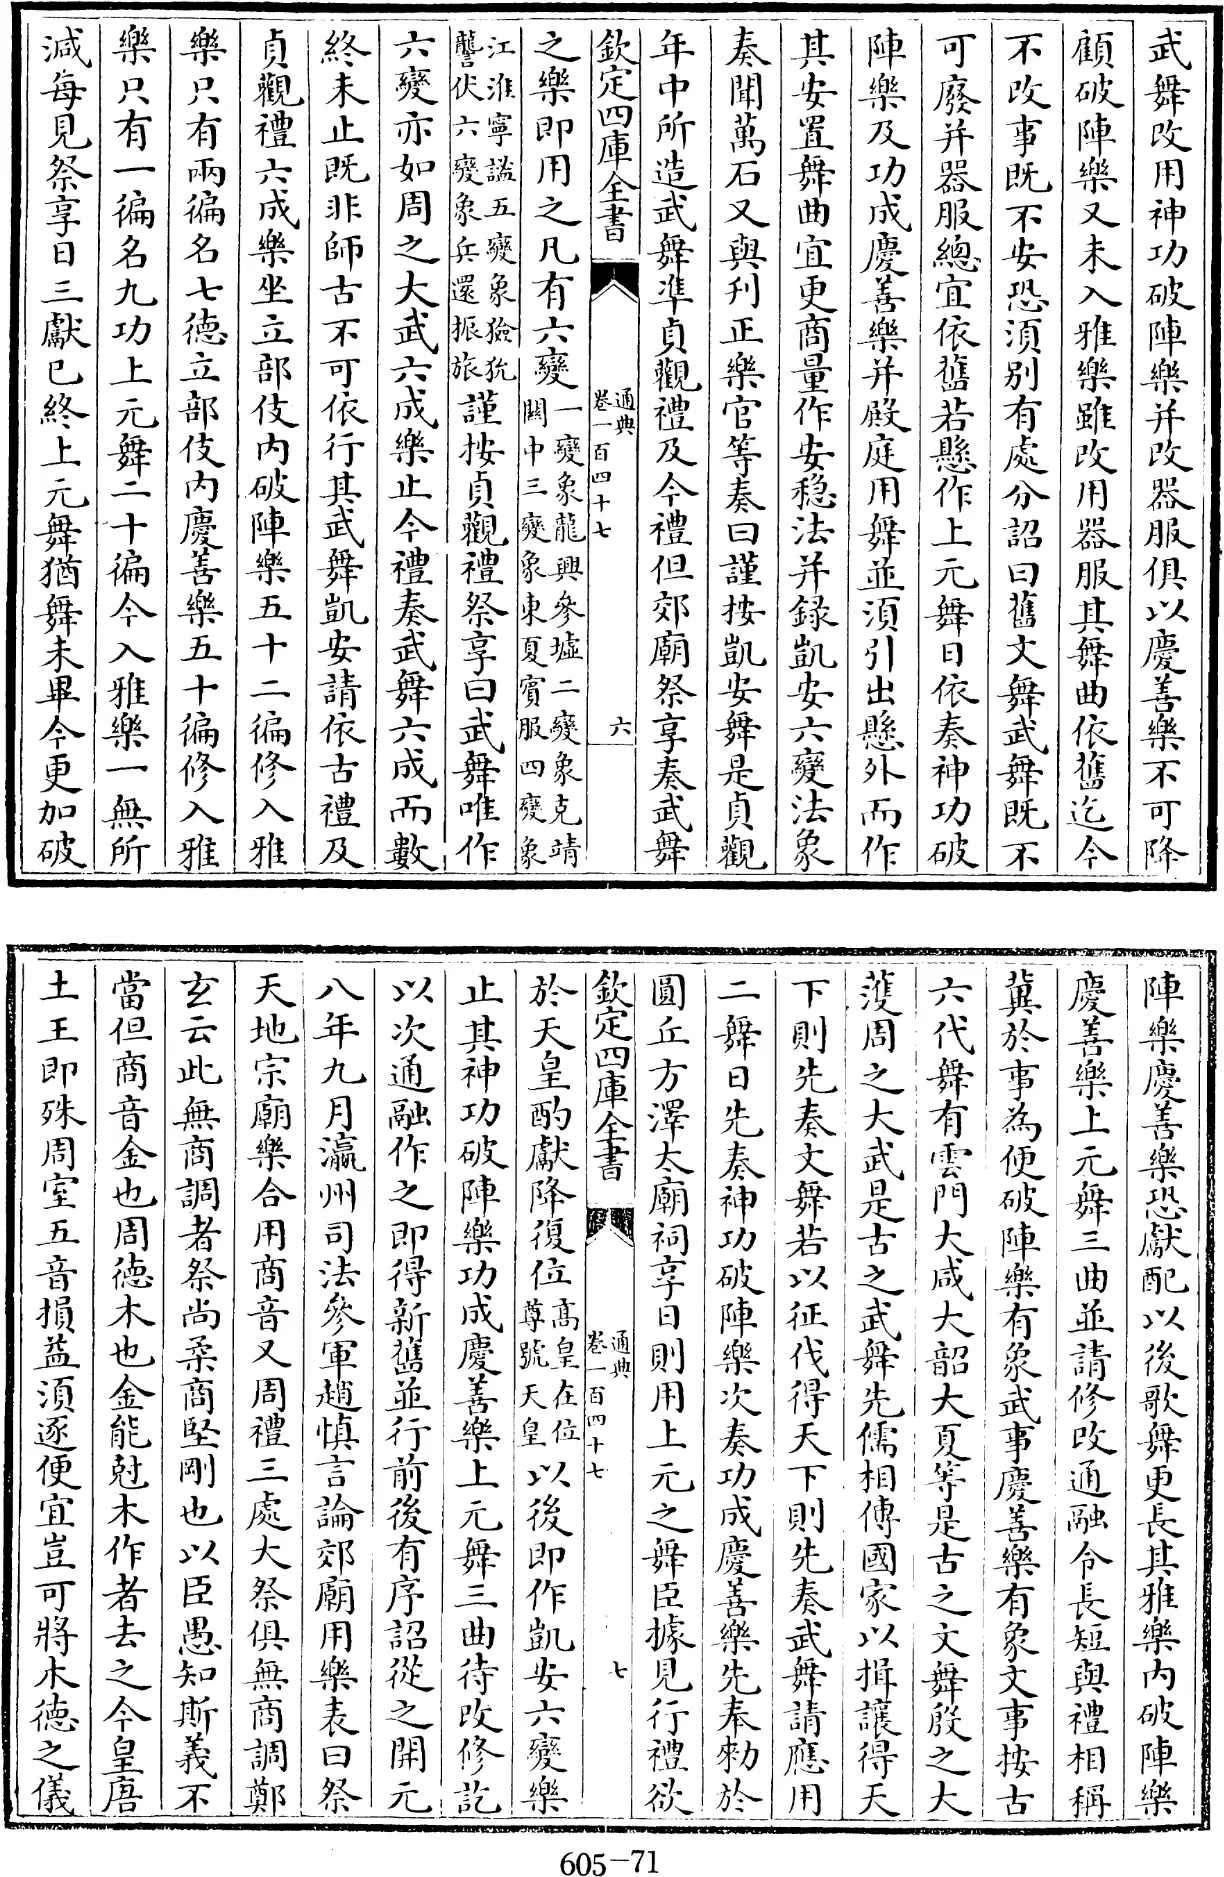 武舞改用神功破陣樂并改器服俱以慶善樂不可降
顧破陣樂又未入雅樂雖改用器服其舞曲依舊迄今
不改事既不安恐須别有處分詔曰舊文舞武舞既不
可廢并器服總宜依舊若懸作上元舞日依奏神功破
陣樂及功成慶善樂并殿庭用舞並須引出懸外而作
其安置舞曲宜更商量作安穩法并録凱安六變法象
奏聞萬石又與刋正樂官等奏曰謹按凱安舞是貞觀
年中所造武舞准貞觀禮及今禮但郊廟祭享奏武舞
欽定四庫全書
通典
卷一百四十七
六
之樂即用之凡有六變一變象龍興參墟二變象克靖
關中三變象東夏賓服四變象
江淮寧謐五變象獫狁
讋伏六變象兵還振旅謹按貞觀禮祭享曰武舞唯作
六變亦如周之大武六成樂止今禮奏武舞六成而數
終未止既非師古不可依行其武舞凱安請依古禮及
貞觀禮六成樂坐立部伎内破陣樂五十二徧修入雅
樂只有兩徧名七徳立部伎内慶善樂五十徧修入雅
樂只有一徧名九功上元舞二十徧今入雅樂一無所
減每見祭享日三獻已終上元舞猶舞未畢今更加破
陣樂慶善樂恐獻配以後歌舞更長其雅樂内破陣樂
慶善樂上元舞三曲並請修改通融令長短與禮相稱
冀於事為便破陣樂有象武事慶善樂有象文事按古
六代舞有雲門大咸大韶大夏等是古之文舞殷之大
濩周之大武是古之武舞先儒相傳國家以揖讓得天
下則先奏文舞若以征伐得天下則先奏武舞請應用
二舞日先奏神功破陣樂次奏功成慶善樂先奉勑於
圓丘方澤太廟祠享日則用上元之舞臣據見行禮欲
欽定四庫全書
通典
卷一百四十七
七
於天皇酌獻降復位高皇在位
尊號天皇以後即作凱安六變樂
止其神功破陣樂功成慶善樂上元舞三曲待改修訖
以次通融作之即得新舊並行前後有序詔從之開元
八年九月瀛州司法參軍趙慎言論郊廟用樂表曰祭
天地宗廟樂合用商音又周禮三處大祭俱無商調鄭
玄云此無商調者祭尚柔商堅剛也以臣愚知斯義不
當但商音金也周徳木也金能尅木作者去之今皇唐
土王即殊周室五音損益須逐便宜豈可將木德之儀
605-71